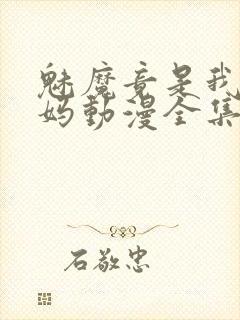 魅魔竟是我
妈动漫全集
石敬忠